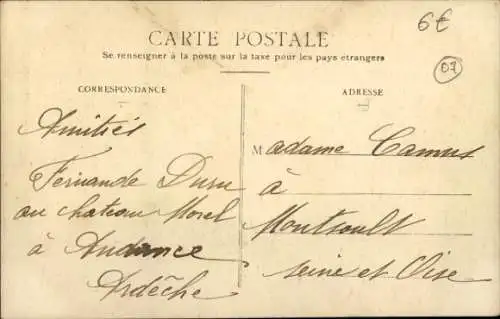 6€
07
CARTE POSTALE
Se renseigner à la poste sur la taxe pour les pays étrangers
CORRESPONDANCE
ADRESSE
Amitiés
Fernande Duru
au château Morel
à Andance
Ardèche
Madame Camus
à
Montsoult
Seine et Oise